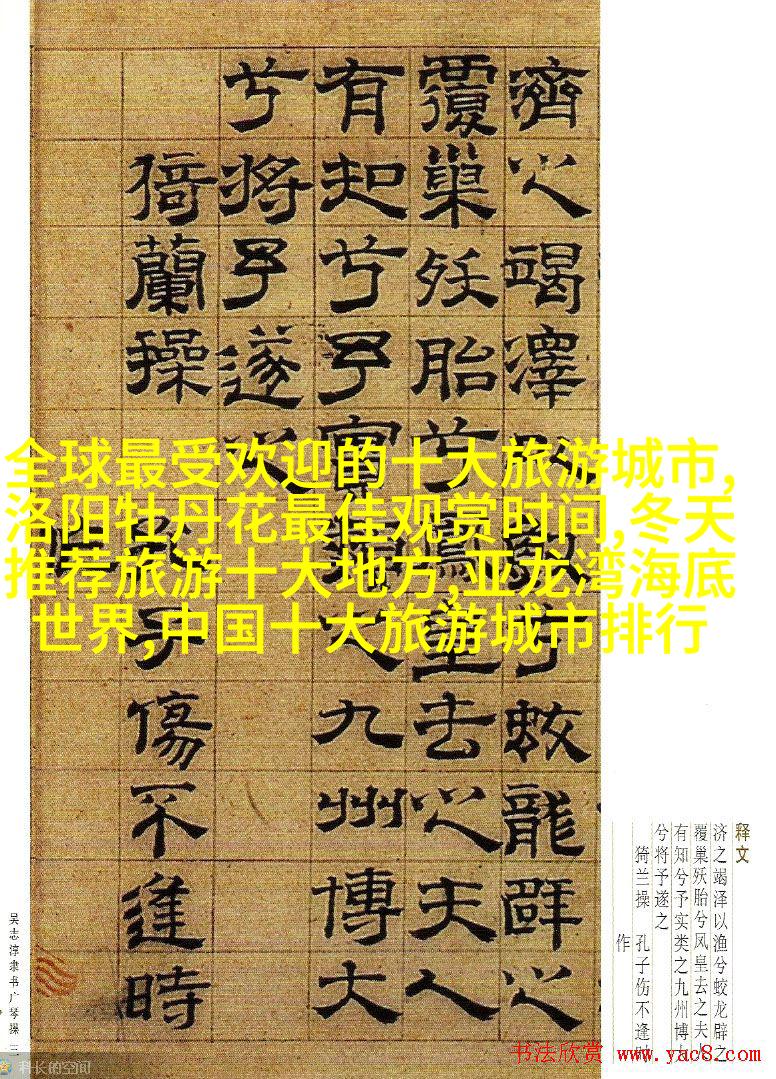 濟之竭澤以漁兮蛟龍辟之
覆巢殀胎兮鳳皇去之夫人
有知兮予實類之九州博大
兮將予遂之
猗蘭操 孔子傷不逢時
作
全球最受欢迎的十大旅游城市,
洛阳牡丹花最佳观赏时间,冬天
推荐旅游十大地方,亚龙湾海底
世界,中国十大旅游城市排行
释文
济之竭泽以渔兮蛟龙辟之
覆巢殀胎兮凤皇去之夫人
有知兮予实类之九州博
兮将予遂之
猗兰操 孔子伤不逢时
作
吴志淳隶书广琴操 三
科长的空间
书法欣赏 www.yac8.com